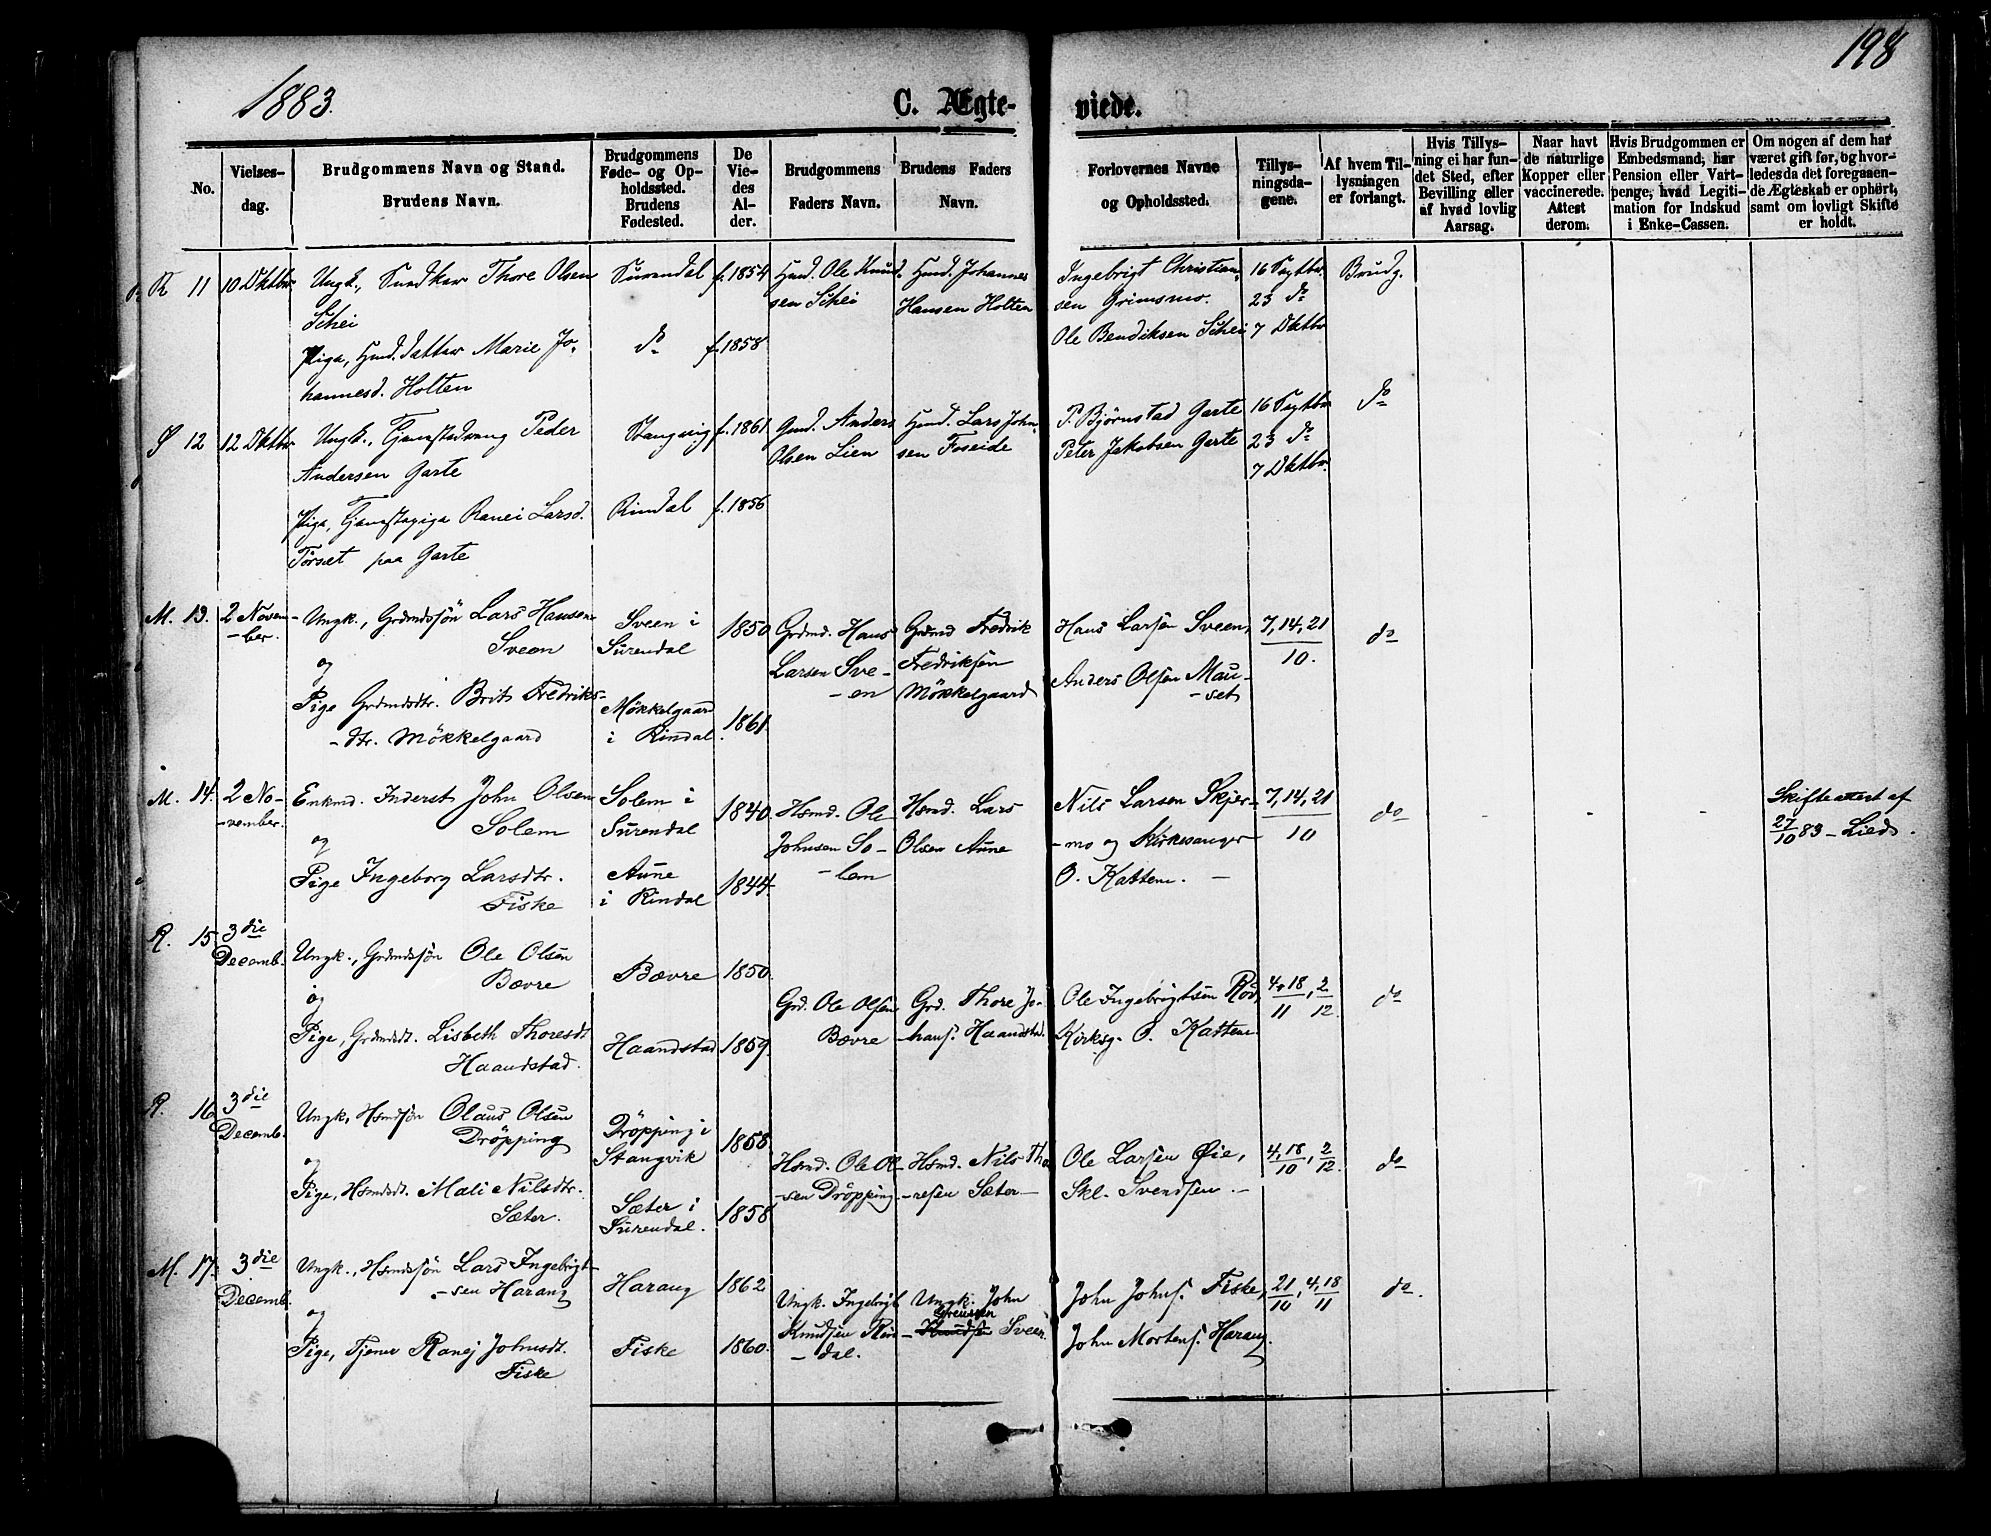 198
1883.
C. Ægteviede.
No.
Vielsesdag.
Brudgommens Navn og Stand.
Brudens Navn.
Brudgommens Føde- og Opholdssted. Brudens Fødested.
De Viedes Alder.
Brudgommens Faders Navn.
Brudens Faders Navn.
Forlovernes Navne og Opholdssted.
Tillysningsdagene.
Af hvem Tillysningen er forlangt.
Hvis Tillysning ei har fundet Sted, efter Bevilling eller af hvad lovlig Aarsag.
Naar havt de naturlige Kopper eller vaccinerede. Attest derom.
Hvis Brudgommen er Embedsmand, har Pension eller Vartpenge, hvad Legitimation for Indskud i Enke-Cassen.
Om nogen af dem har været gift før, og hvorledes da det foregaaende Ægteskab er ophørt, samt om lovligt Skifte er holdt.
R 11 10 Oktbr.
Ungk., Thore Olsen
Schei
Surendal f. 1854
Gmd. Ole Knudsen Schei
Gmd. Johannes
Hansen Holten
Ingebrigt Christiansen Grimsmo.
Ole Bendiksen Schei
16 Septbr.
23 do
7 Oktbr
Brudg.
Pige, Gmd. datter Marie Johannesd. Holten
do f. 1858
12 12 Oktbr
Ungk., Peder
Andersen Garte
Stangvig f. 1861
Gmd. Anders
Olsen Lien
Gmd. Lars Johnsen Foseide
P. Bjørnstad Garte
Peter Jakobsen Garte
16 Septbr
23 do
7 Oktbr.
do
Pige, Tjenestepige Ranei Larsd.
Torset paa Garte
Rindal f. 1856
M. 13. 2 November.
Ungk., Grdmdssön Lars Hansen
Sveen
og
Pige Grdmdsdtr. Brit Fredriksdtr. Mökkelgaard
Sveen i
Surendal
1850
Mökkelgaard
i Rindal
1861.
Grdmd. Hans
Larsen Sveen
Grdmd Fredrik
Fredriksen
Mökkelgaard
Hans Larsen Sveen,
Anders Olsen Mauset
7, 14, 21
10.
do
M. 14. 2 November.
Enkmd. Inderst John Olsen
Solem
og
Pige Ingeborg Larsdtr.
Fiske
Solem i
Surendal
1840.
Aune
i Rindal
1844.
Hsmd. Ole
Johnsen Solem
Hsmd. Lars
Olsen Aune
Nils Larsen Skjermo og Kirkesanger
O. Kattem. -
7, 14, 21
10
do
Skifteattest af
27/10 83 - Lied.
R. 15. 3die
Decemb.
Ungk., Grdmdssön Ole Olsen
Bævre
og
Pige, Grdmdsdt. Lisbeth Thoresdt
Haandstad.
Bævre 1850.
Haandstad 1859.
Grd. Ole Olsen
Bævre
Grd. Thore Johans. Haandstad.
Ole Ingebrigtsen Rød,
Kirksg. O. Kattem
4, 18 2
11 12
do
R. 16 3die
Decemb.
Ungk, Hsmdssön Olaus Olsen
Dröpping
og
Pige, Hsmdsdt. Mali Nilsdtr.
Sæter.
Dröpping i
Stangvik
1858
Sæter i
Surendal.
1858
Hsmd. Ole Olsen Dröpping
Hsmd. Nils Thoresen Sæter-
Ole Larsen Øie,
Skl. Svendsen. -
4, 18, 2
10 12.
do
M. 17. 3die
Decemb.
Ungk., Hsmdssön Lars Ingebrigtsen Harang
og
Pige, Tjener Ranej Johnsdt.
Fiske
Harang 1862
Fiske 1860.
Ungk. Ingebrigt
Knudsen Rindal.
Ungk. John
Knudsen Sveen.
John Johns. Fiske,
John Mortens. Harang.
21, 4, 18
10 11
do.